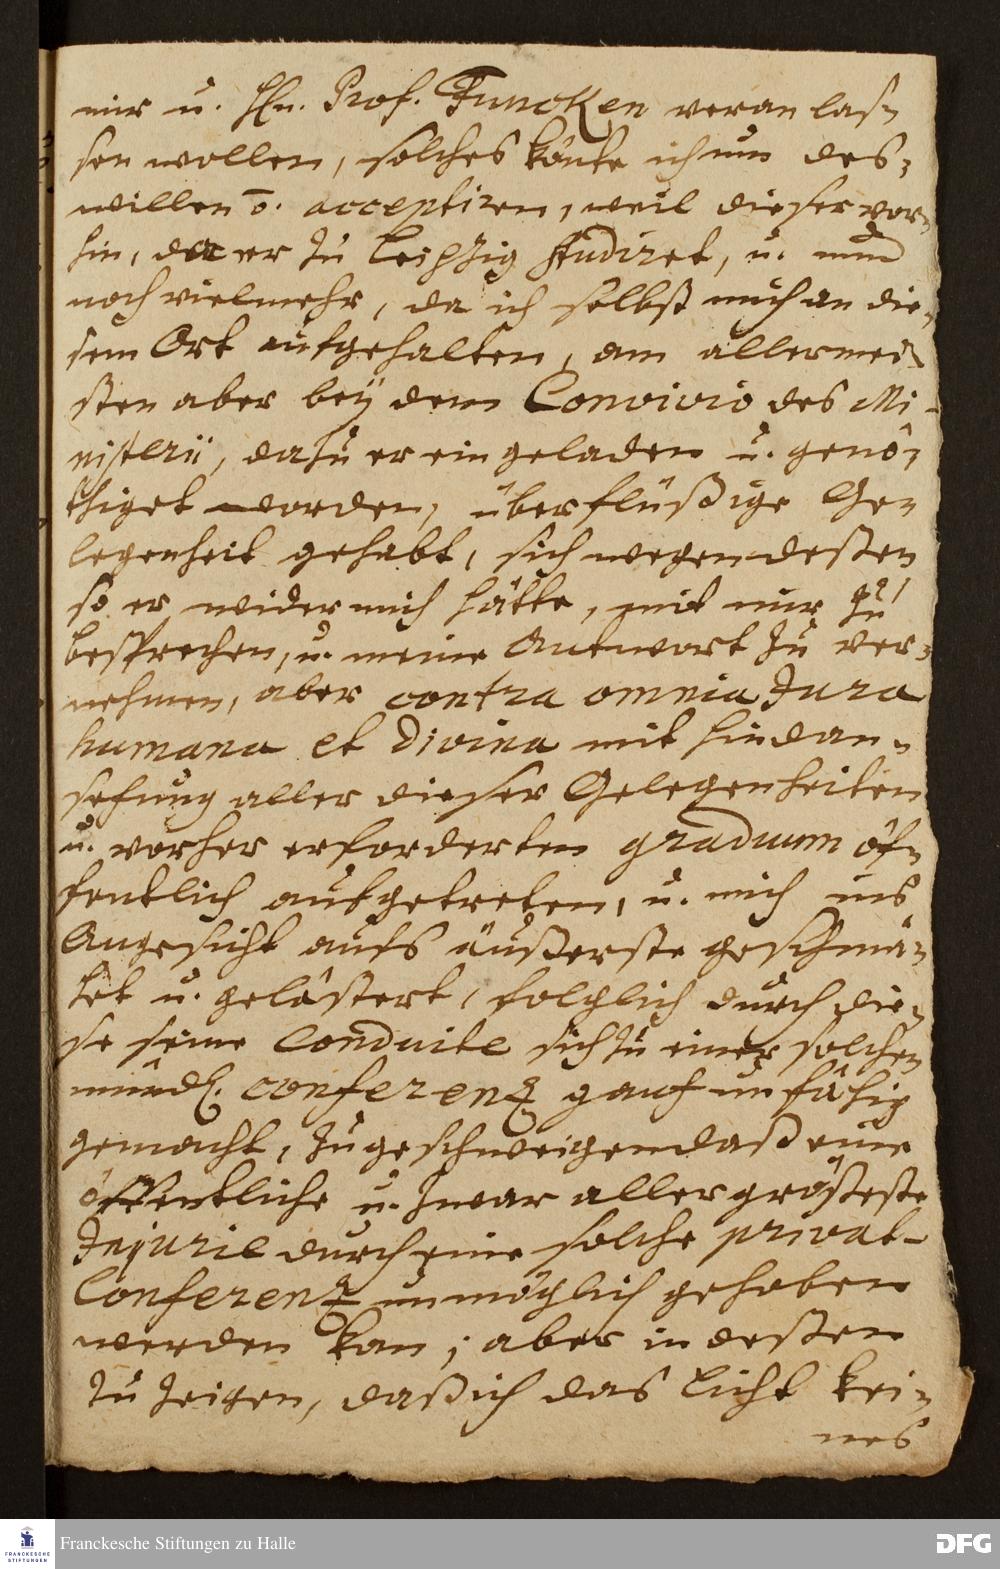 mir u. Hn. Prof. Funcken veranlas-
sen wollen, solches könte ich um des-
willen õ. acceptiren, weil dieser vor-
hin, da er zu Leipzig studiret, u. nun
noch vielmehr, da ich selbst mich an die-
sem Ort aufgehalten, am allermei-
sten aber bey dem Convivio des Mi-
nisterii, dazu er ein geladen u. genö-
thiget worden, überflüßige Ge-
legenheit gehabt, sich wegen deßen
so er wider mich hätte, mit mir zu
besprechen, u. meine Antwort zu ver-
nehmen, aber contra omnia Jura
humana et Divina mit hindan-
setzung aller dieser Gelegenheiten
u. vorher erforderten graduum öf-
fentlich aufgetreten, u. mich ins
Angesicht aufs äußerste geschmä-
het u. gelästert, folglich durch die-
se seine Conduite sich zu einer solchen
mündl. conferenz gantz unfähig
gemacht, zugeschweigen daß eine
öffentliche u. zwar allergrößeste
Injurie durch eine solche privat-
Conferenz unmöglich gehoben
werden kan; aber in deßen
zu zeigen, daß ich das Licht kei-
nes
Franckesche Stiftungen zu Halle
FRANCKESCHE
STIFTUNGEN
DFG